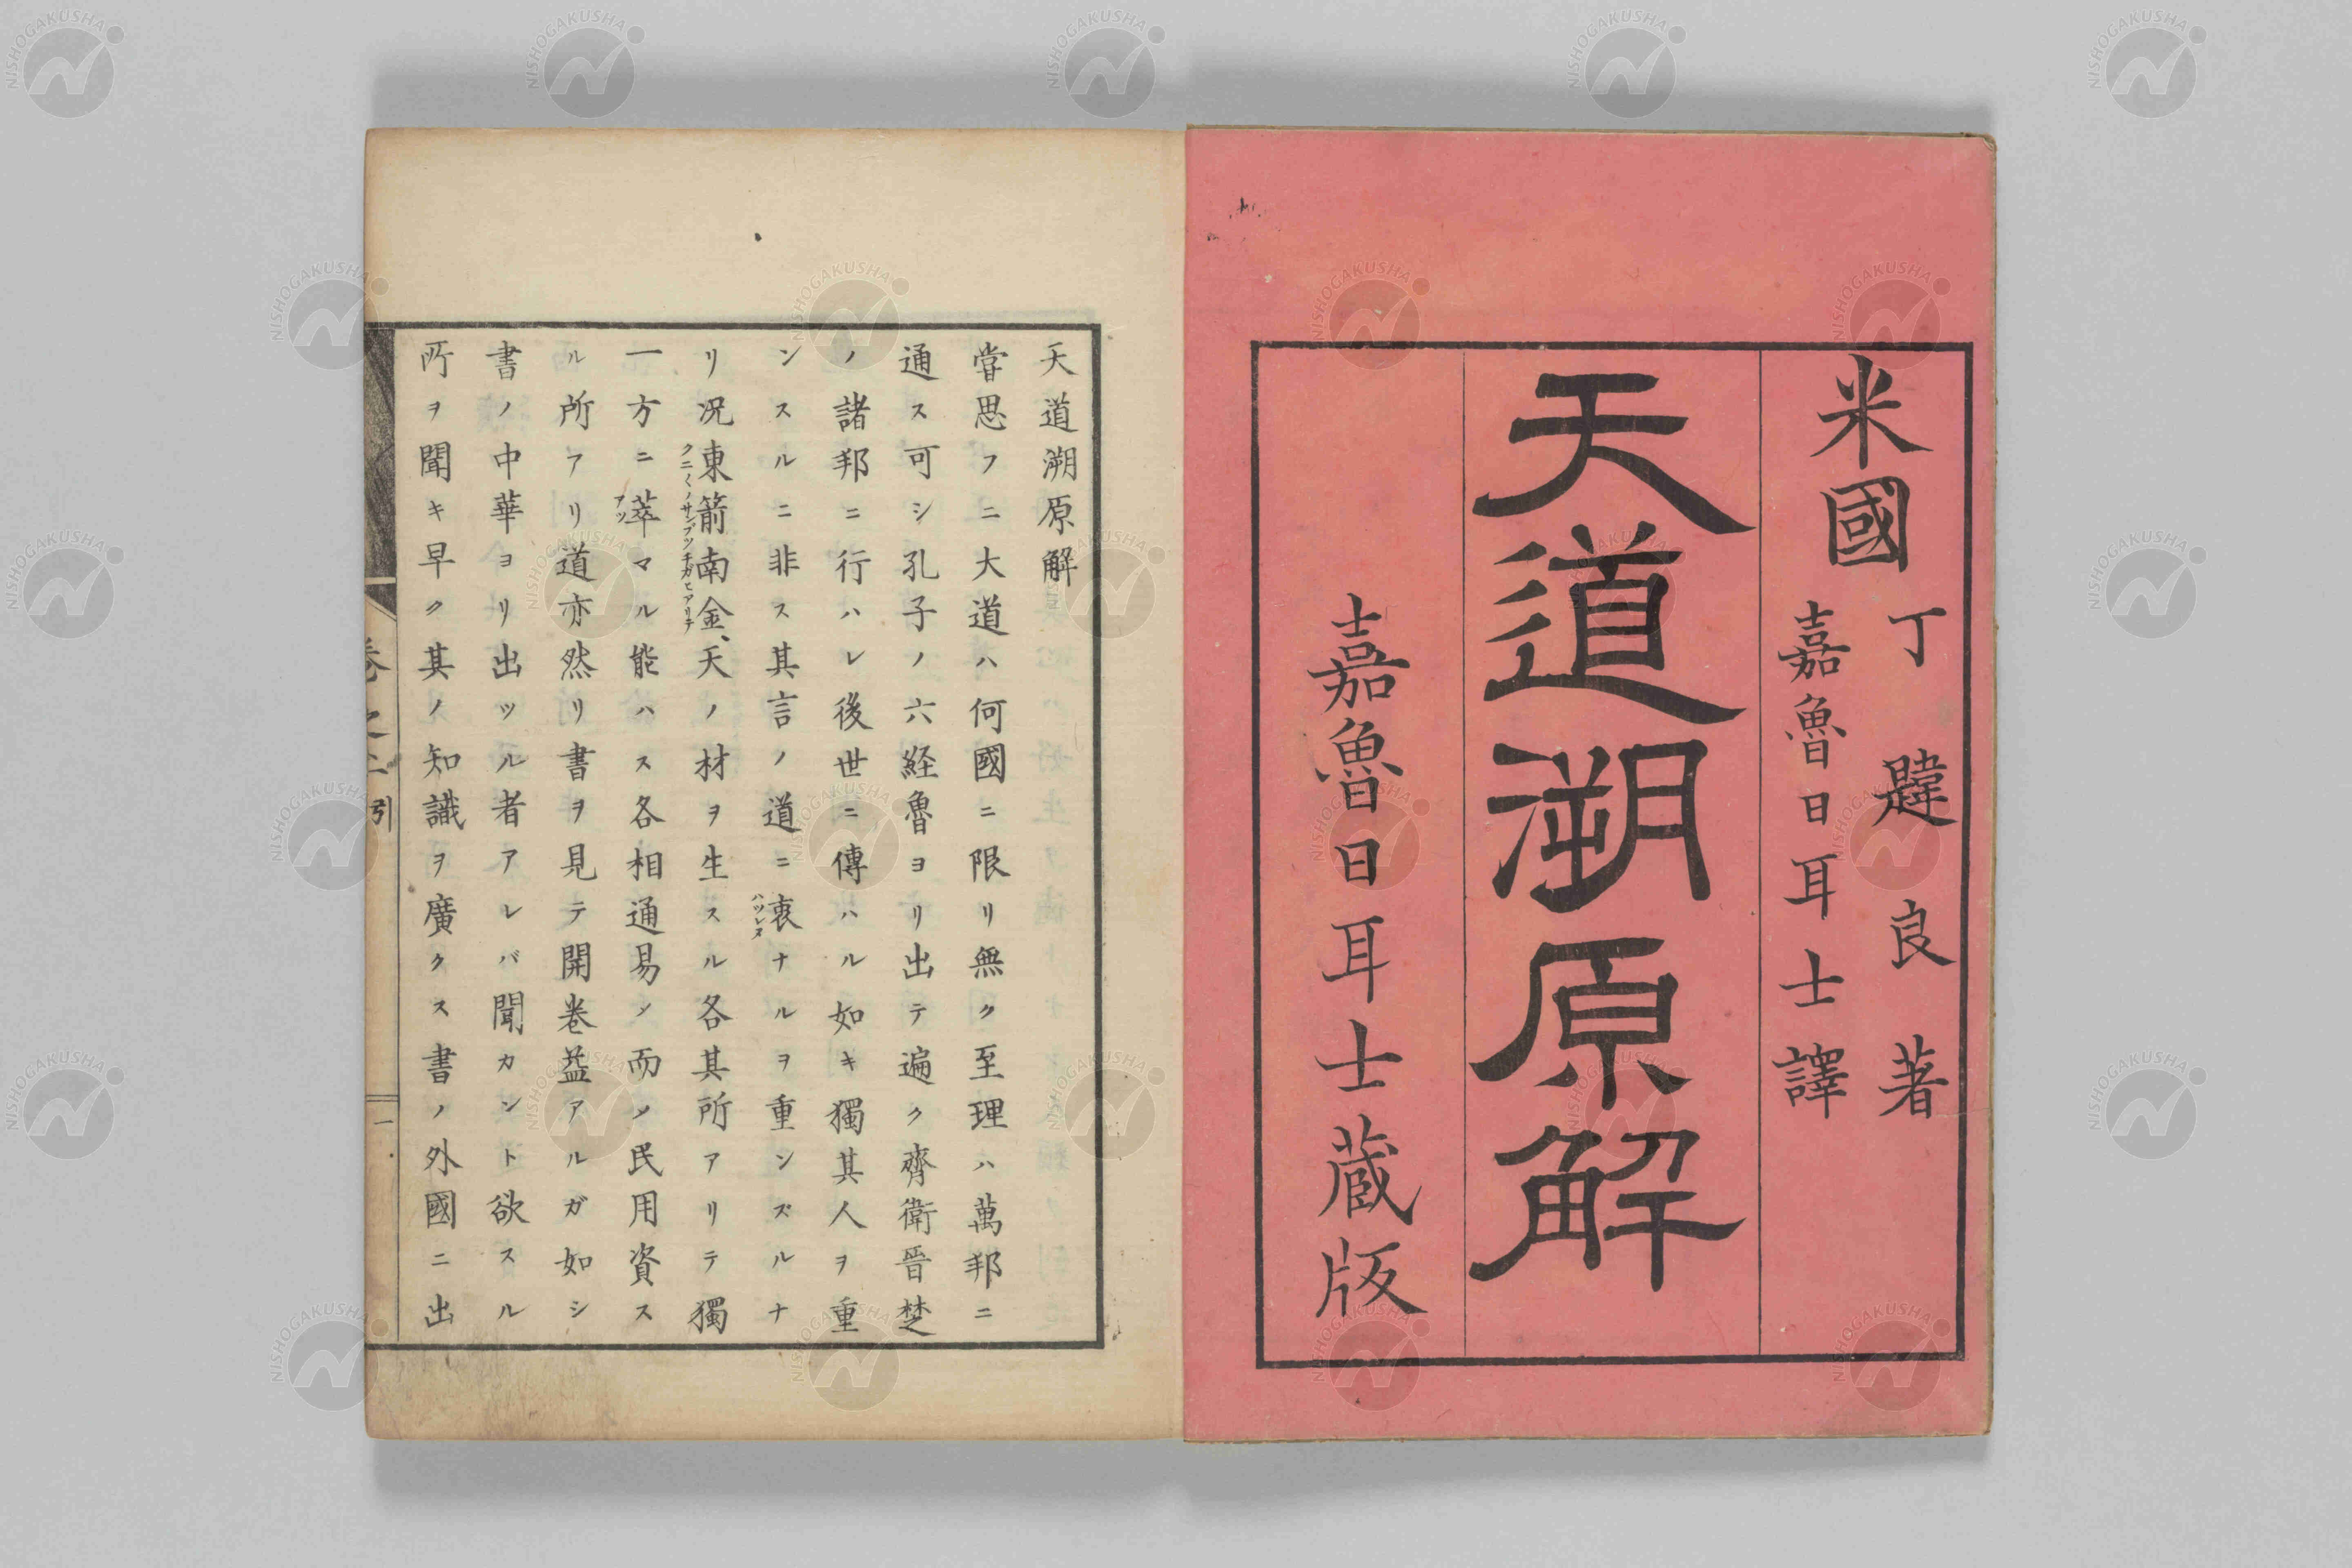 米國
丁韙良著
嘉魯日耳士譯
天道溯原解
嘉魯日耳士蔵版
天道溯原解
甞思フニ大道ハ何國ニ限リ無ク至理ハ萬邦ニ
通ス可シ孔子ノ六経魯ヨリ出テ遍ク齊衛晉楚
ノ諸邦ニ行ハレ後世ニ傳ハル如キ獨其人ヲ重
ンスルニ非ス其言ノ道ニ衷ナルヲ重ンズルナ
ハツレヌ
リ况東箭南金、天ノ材ヲ生スル各其所アリテ獨
クニ〱ノサンブツチガヒアリテ
一方ニ萃マル能ハス各相通易シ而ノ民用資ス
アツ
ル所アリ道亦然リ書ヲ見テ開卷益アルガ如シ
書ノ中華ヨリ出ツル者アレバ聞カント欲スル
所ヲ聞キ早ク其ノ知識ヲ廣クス書ノ外國ニ出
卷之上 引
一
NISHOGAKUSHA